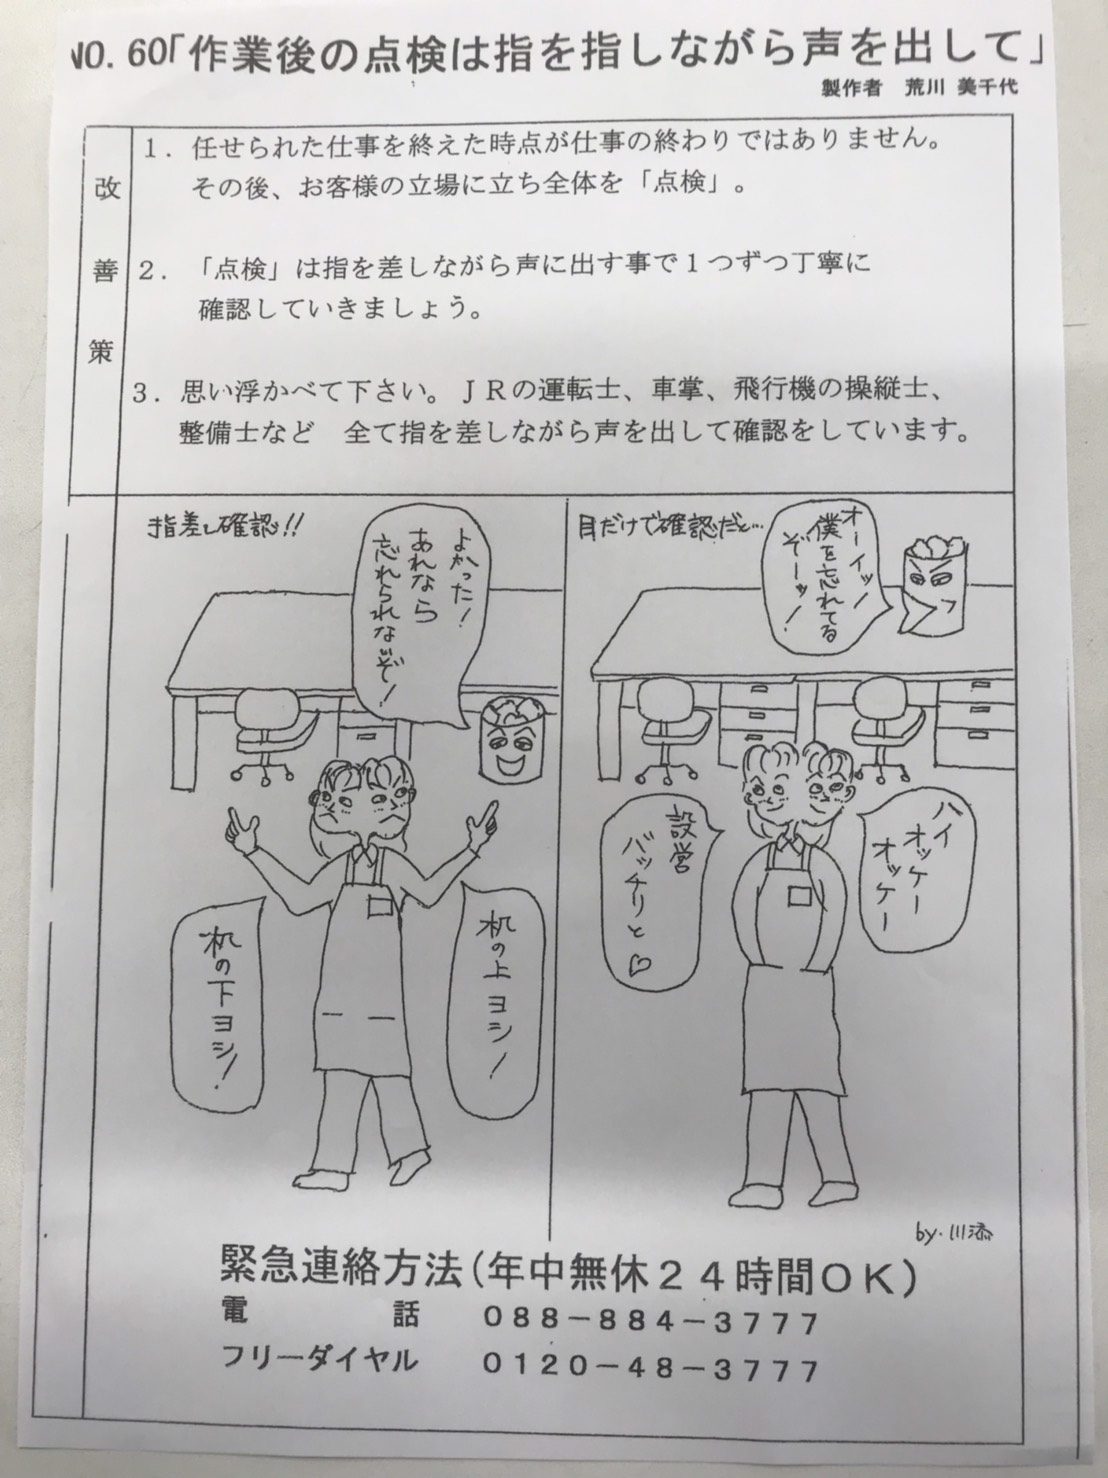 NO. 60「作業後の点検は指を指しながら声を出して」
製作者　荒川 美千代
改善策
1．任せられた仕事を終えた時点が仕事の終わりではありません。
その後、お客様の立場に立ち全体を「点検」。
2．「点検」は指を差しながら声に出す事で1つずつ丁寧に
確認していきましょう。
3．思い浮かべて下さい。ＪＲの運転士、車掌、飛行機の操縦士、
整備士など　全て指を差しながら声を出して確認をしています。
指差し確認!!
よかった！
あれなら
忘れられないぞ！
机の下ヨシ！
机の上ヨシ！
目だけで確認だと…
オーイッ！
僕を忘れてる
ぞーッ！
設営
バッチリと♡
ハイ
オッケー
オッケー
by.川添
緊急連絡方法（年中無休２４時間ＯＫ）
電　話　０８８－８８４－３７７７
フリーダイヤル　０１２０－４８－３７７７